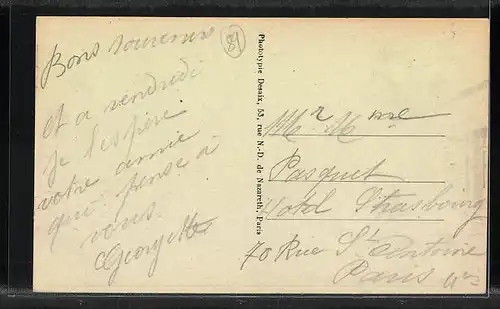 Bons souvenirs
81
et a vendredi
je l'espère
votre amie
qui pense à
vous
Georgette
Phototypie Desaix, 53, rue N.-D. de Nazareth, Paris
Mr Mme
Pasquet
Hotel Strasbourg
70 Rue St Antoine
Paris